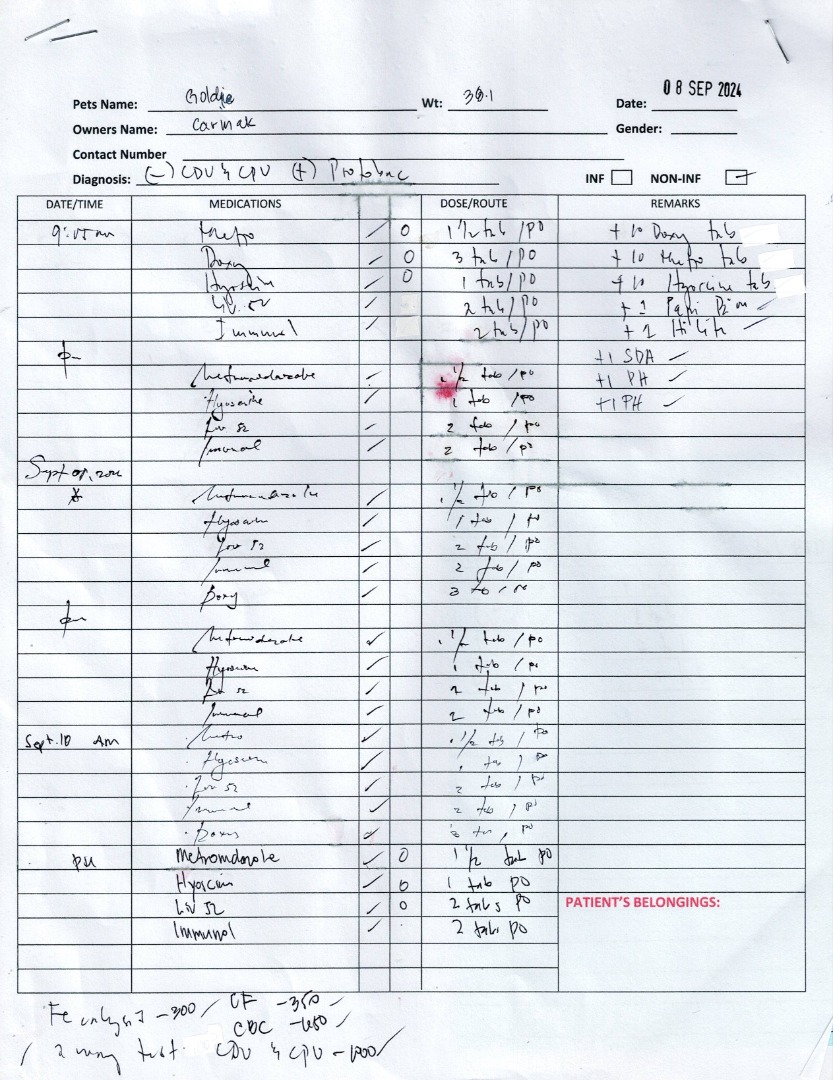 08 SEP 2024
Pets Name: Goldie Wt: 30.1 Date:
Owners Name: Carmak Gender:
Contact Number
Diagnosis: (-) CDV & CPV (+) Protobac INF NON-INF
DATE/TIME MEDICATIONS DOSE/ROUTE REMARKS
Metro 0 1 1/2 tab / PO + 10 Doxy tab
Doxy 0 3 tab / PO + 10 Metro tab
Hyoscine 0 1 tab / PO + 10 Hyoscine tab
Liv. 52 2 tab / PO + 1 Papi
Immunol 2 tab / PO + 1 Hilite
pm +1 SDA
Metronidazole 1 1/2 tab / PO +1 PH
Hyoscine 1 tab / PO +1 PH
Liv 52 2 tab / PO
Immunol 2 tab / PO
Sept 09, 2024
Metronidazole 1 1/2 tab / PO
Hyoscine 1 tab / PO
Liv 52 2 tab / PO
Immunol 2 tab / PO
Doxy 3 tab / PO
pm
Metronidazole 1 1/2 tab / PO
Hyoscine 1 tab / PO
Liv 52 2 tab / PO
Immunol 2 tab / PO
Sept. 10 AM Metro 1 1/2 tab / PO
Hyoscine 1 tab / PO
Liv 52 2 tab / PO
Immunol 2 tab / PO
Doxy 3 tab / PO
PM Metronidazole 0 1 1/2 tab PO
Hyoscin 0 1 tab PO
Liv 52 0 2 tabs PO PATIENT'S BELONGINGS:
Immunol 2 tabs PO
-300 / CF -350
CBC
2 way test CDV & CPV